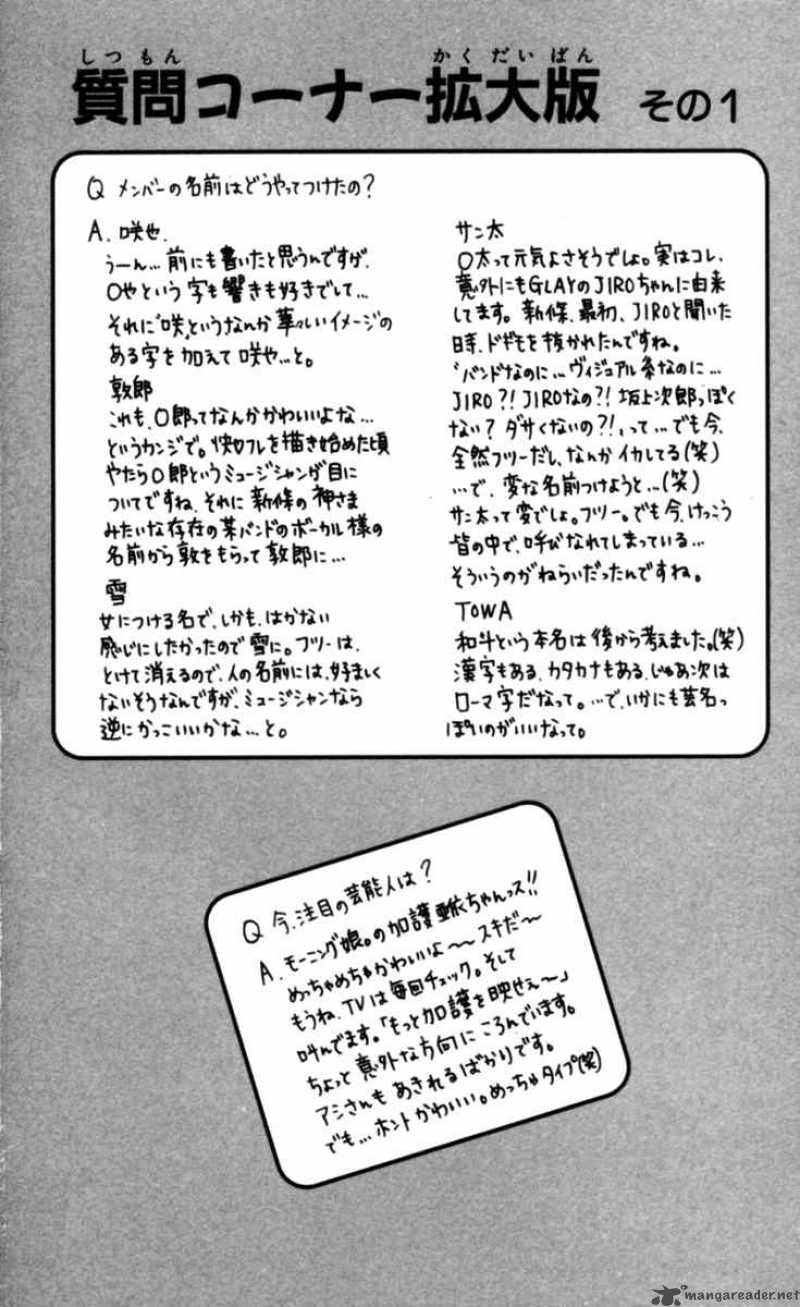 しつもん かくだいばん
質問コーナー拡大版 その1
Q メンバーの名前はどうやってつけたの?
A. 咲也.
うーん…前にも書いたと思うんですが、
○やという字も響きも好きでして…
それに"咲"というなんか華々しいイメージの
ある字を加えて咲や…と。
敦郎
これも、○郎ってなんかかわいいよな…
というカンジで。快フレを描き始めた頃
やたら○郎というミュージシャンが目に
ついてですね、それに新條の神さま
みたいな存在の某バンドのボーカル様の
名前から敦をもらって敦郎に…
雪
女につける名で、しかも、はかない
感じにしたかったので雪に。フツーは、
とけて消えるので、人の名前には、好ましく
ないそうなんですが、ミュージシャンなら
逆にかっこいいかな…と。
サン太
○太って元気よさそうでしょ。実はコレ、
意外にもGLAYのJIROちゃんに由来
してます。新條、最初、JIROと聞いた
時、ドギモを抜かれたんですね。
"バンドなのに…ヴィジュアル系なのに…
JIRO?!JIROなの?!坂上次郎っぽく
ない?ダサくないの?!"って…でも今、
全然フツーだし、なんかイカしてる(笑)
…で、変な名前つけようと…(笑)
サン太って変でしょ。フツー。でも今、けっこう
皆の中で、呼びなれてしまっている…
そういうのがねらいだったんですね。
TOWA
和斗という本名は後から考えました。(笑)
漢字もある、カタカナもある、じゃあ次は
ローマ字だなって。…で、いかにも芸名っ
ぽいのがいいなって。
Q 今、注目の芸能人は?
A. モーニング娘。の加護亜依ちゃんっス!!
めっちゃめちゃかわいいよ〜〜スキだ〜
もうね、TVは毎回チェック。そして
叫んでます。「もっと加護を映せぇ〜」
ちょっと意外な方向にころんでいます。
アシさんもあきれるばかりです。
でも…ホントかわいい。めっちゃタイプ(笑)
mangareader.net